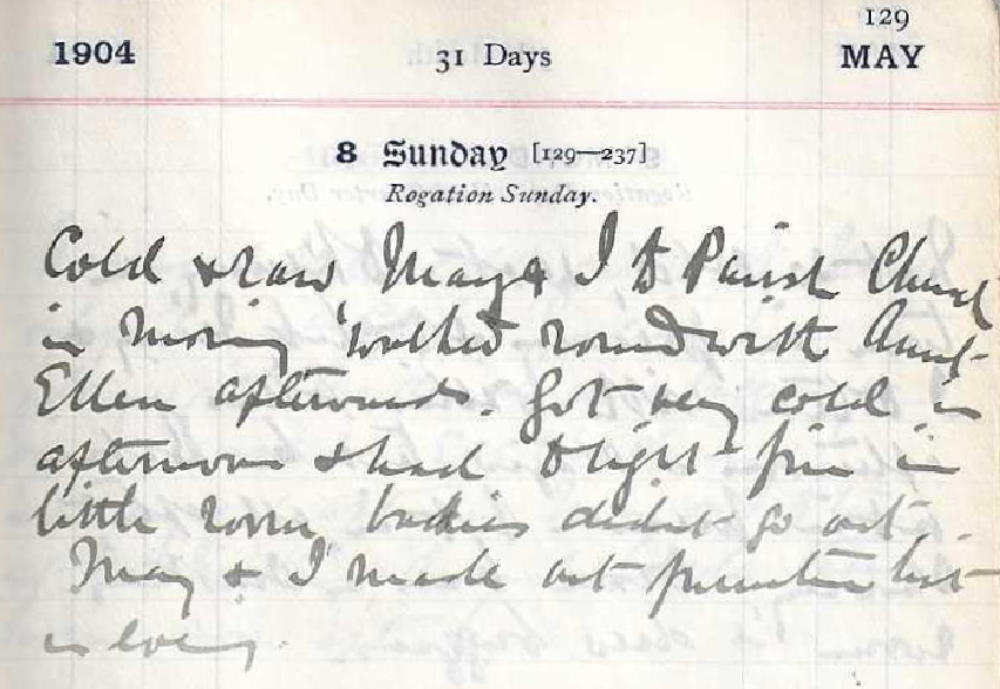 129
1904 31 Days MAY
8 Sunday [129—237]
Rogation Sunday.
Cold & raw May & I to Parish Church
in morning walked round with Aunt
Ellen afterwards. Got very cold in
afternoon & had to light fire in
little room, babies didnt go out.
May & I made out furniture list
in eveng.